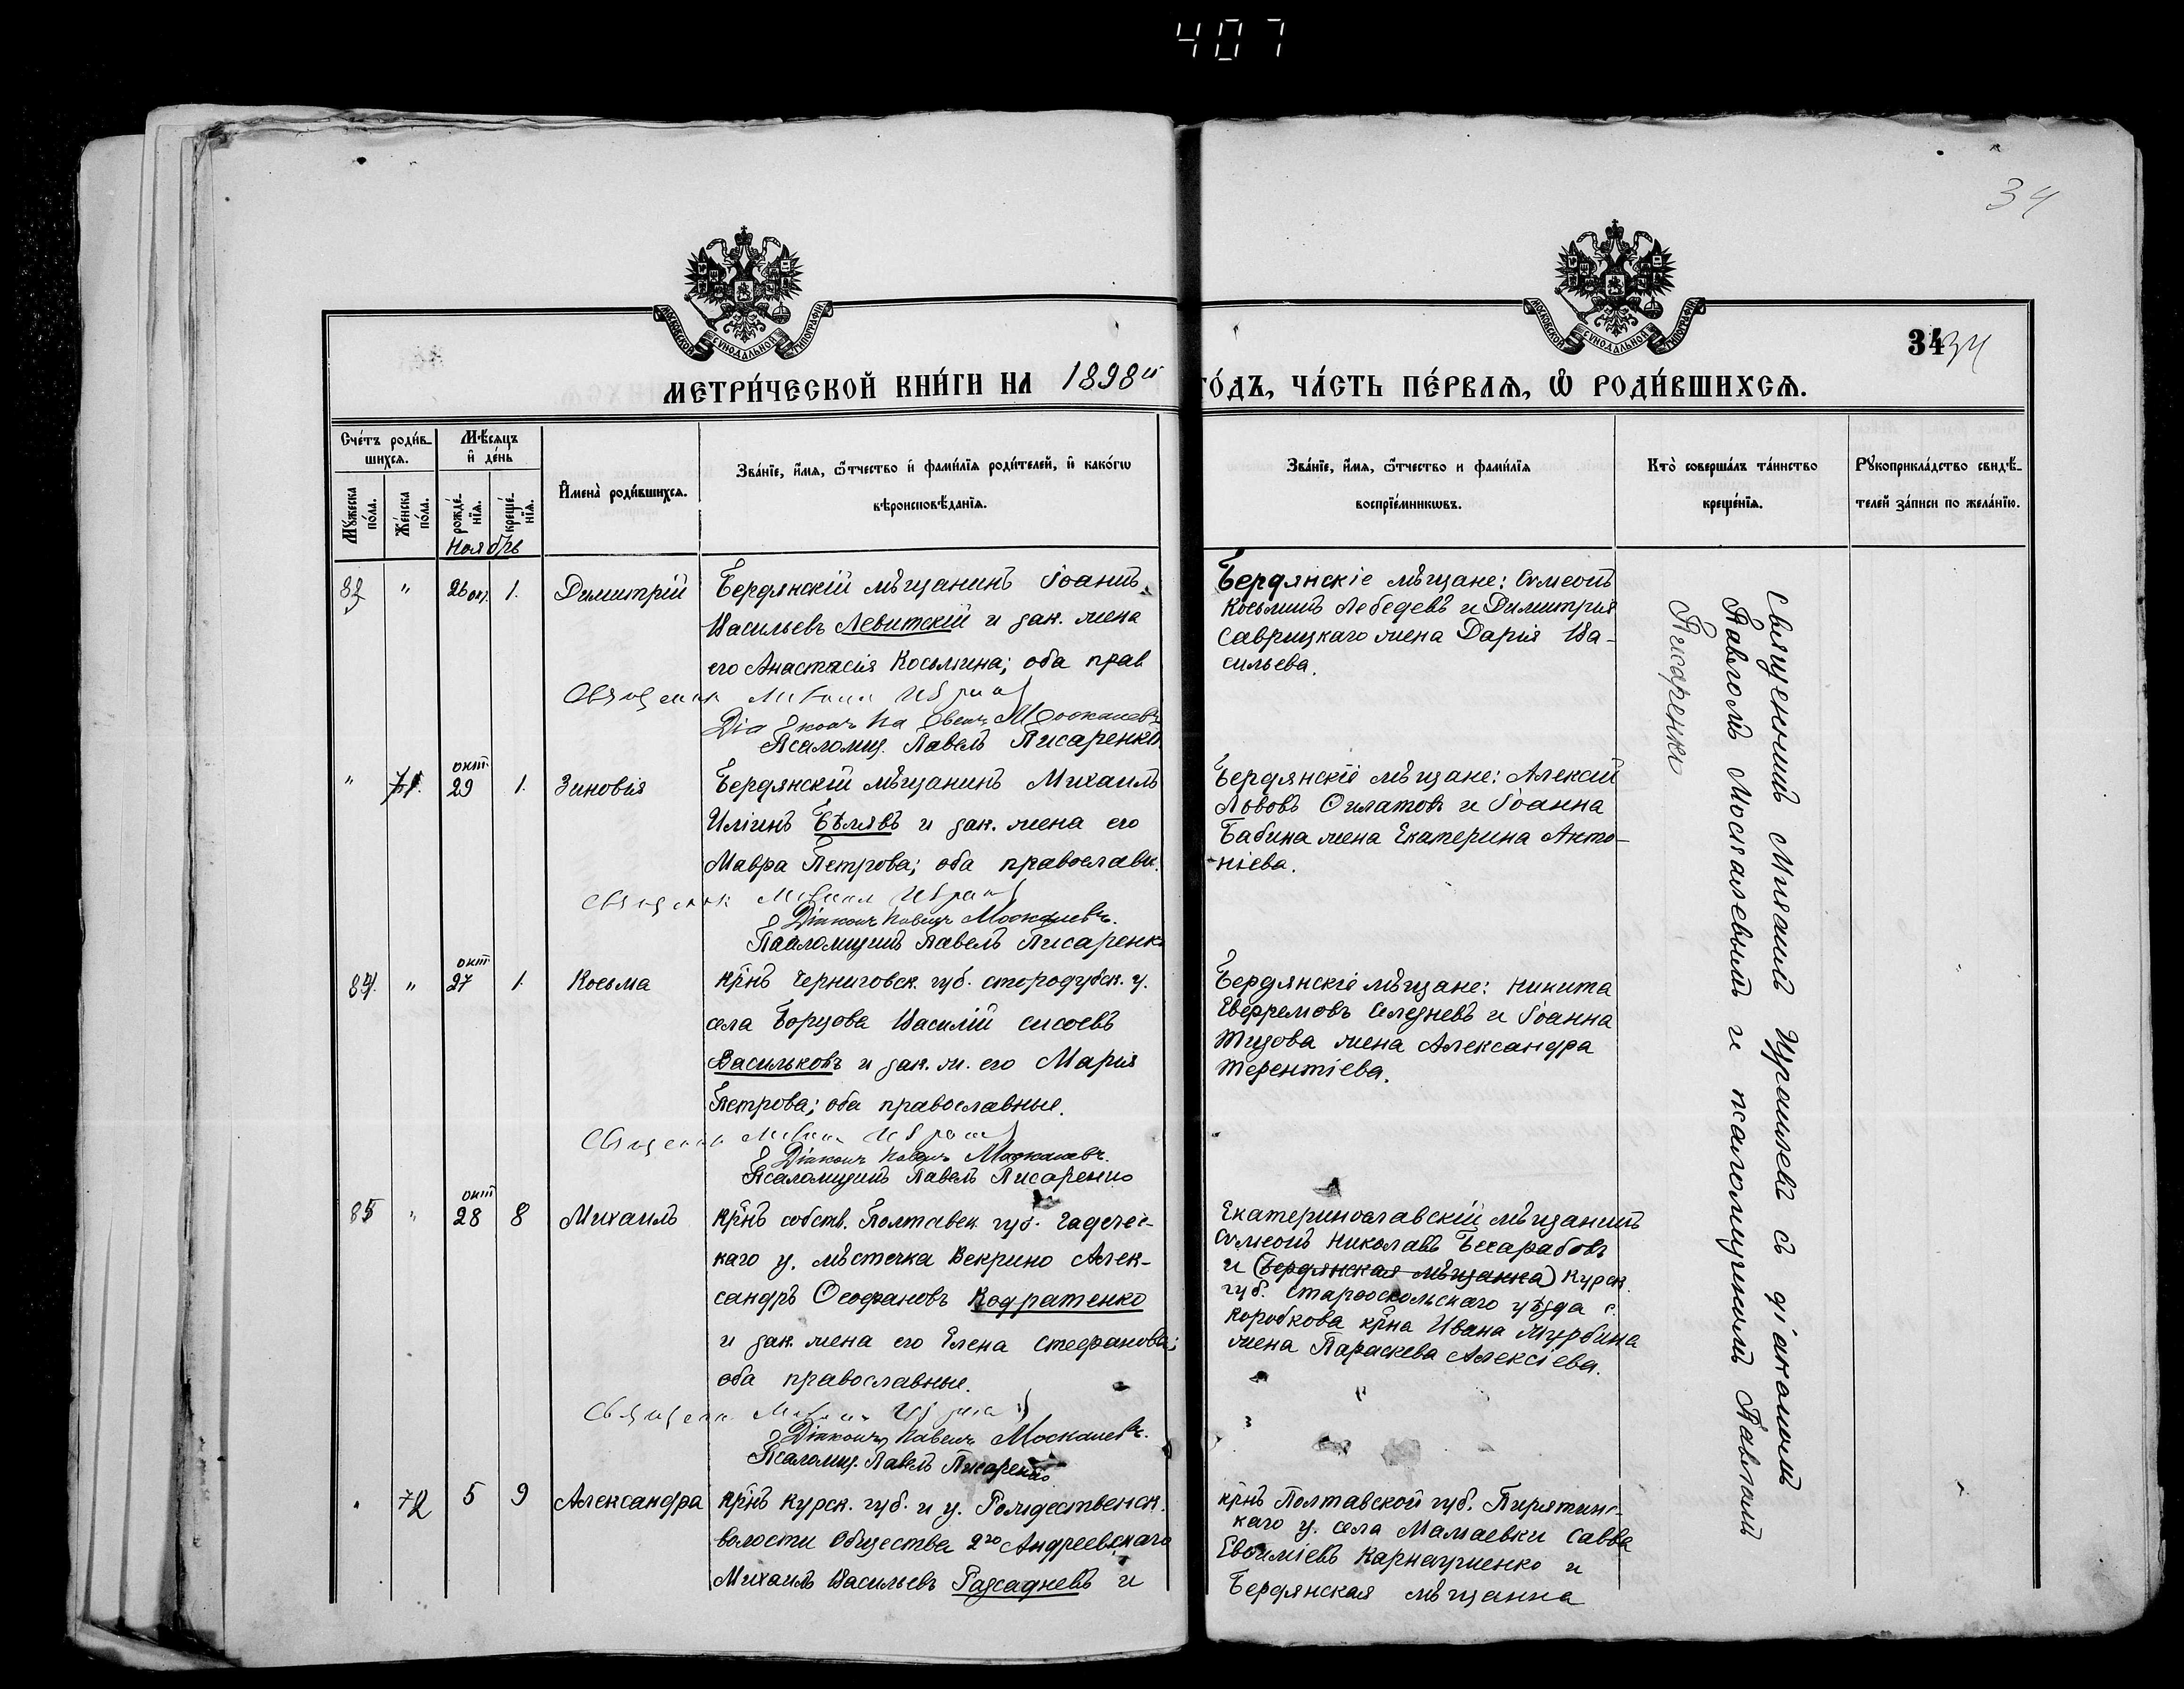 407
34
МОСКОВСКОЙ СѴНОДАЛЬНОЙ ТИПОГРАФІИ
МОСКОВСКОЙ СѴНОДАЛЬНОЙ ТИПОГРАФІИ
34 34
МЕТРИ́ЧЕСКОЙ КНИ́ГИ НА 1898й ГО́ДЪ, ЧА́СТЬ ПЕ́РВАѦ, Ѡ РОДИ́ВШИХСѦ.
Сче́тъ роди́в-
шихсѧ.
Мꙋ́жеска
по́ла.
Же́нска
по́ла.
Мѣ́сѧцъ
и҆ де́нь
рожде́-
нїѧ.
креще́-
нїѧ.
И҆мена̀ роди́вшихсѧ.
Зва́нїе, и҆́мѧ, ѻ҆́тчество и҆ фами́лїѧ роди́телей, и҆ како́гѡ
вѣроисповѣ́данїѧ.
Зва́нїе, и҆́мѧ, ѻ҆́тчество и фами́лїѧ
воспрїе́мникѡвъ.
Кто̀ соверша́лъ та́инство
креще́нїѧ.
Рꙋкоприкла́дство свидѣ́-
телей за́писи по жела́нїю.
Ноябрь
83 " 26 окт. 1. Димитрій
Бердянскій мѣщанинъ Іоаннъ
Васильевъ Левитскій и зак. жена
его Анастасія Косьмина; оба прав
Священник Михаил
Діаконъ Павелъ Москалевъ
Псаломщ. Павелъ Писаренко
Бердянскіе мѣщане: Сѵмеонъ
Косьминъ Лебедевъ и Димитрія
Саврицкаго жена Дарія Ва-
сильева.
" 71. окт. 29 1. Зиновія
Бердянскій мѣщанинъ Михаилъ
Иліинъ Бѣляевъ и зак. жена его
Мавра Петрова; оба православн.
Священник Михаил
Діаконъ Павелъ Москалевъ.
Псаломщикъ Павелъ Писаренко
Бердянскіе мѣщане: Алексій
Львовъ Филатовъ и Іоанна
Бабина жена Екатерина Анто-
ніева.
84. " окт 27 1. Косьма
крнъ Черниговск. губ. стородубск. у.
села Борщова Василій Сисоевъ
Васильковъ и зак. ж. его Марія
Петрова; оба православные.
Священник Михаил
Діаконъ Павелъ Москалевъ.
Псаломщикъ Павелъ Писаренко
Бердянскіе мѣщане: Никита
Евфремовъ Селезневъ и Іоанна
Тизова жена Александра
Терентіева.
85 " окт 28 8 Михаилъ
крнъ собств. Полтавск. губ. Гадячес-
каго у. мѣстечка Векрино Алек-
сандръ Феофановъ Кодратенко
и зак. жена его Елена Стефанова;
оба православные.
Священник Михаил
Діаконъ Павелъ Москалевъ.
Псаломщ. Павелъ Писаренко
Екатеринославскій мѣщанинъ
Сѵмеонъ Николаевъ Бесарабовъ
и (Бердянская мѣщанка) Курск.
губ. Старооскольскаго уѣзда с.
Коробкова крна Ивана Турбина
жена Параскева Алексіева.
72 5 9 Александра
крнъ Курск. губ. и у. Рождественск.
волости Общества 2го Андреевскаго
Михаилъ Васильевъ Разсадневъ и
крнъ Полтавской губ. Пирятинс-
каго у. села Мамаевки Савва
Евѳиміевъ Карнаушенко и
Бердянская мѣщанка
Священникъ Михаилъ Израилевъ съ діакономъ
Павломъ Москалевымъ и псаломщикомъ Павломъ
Писаренко